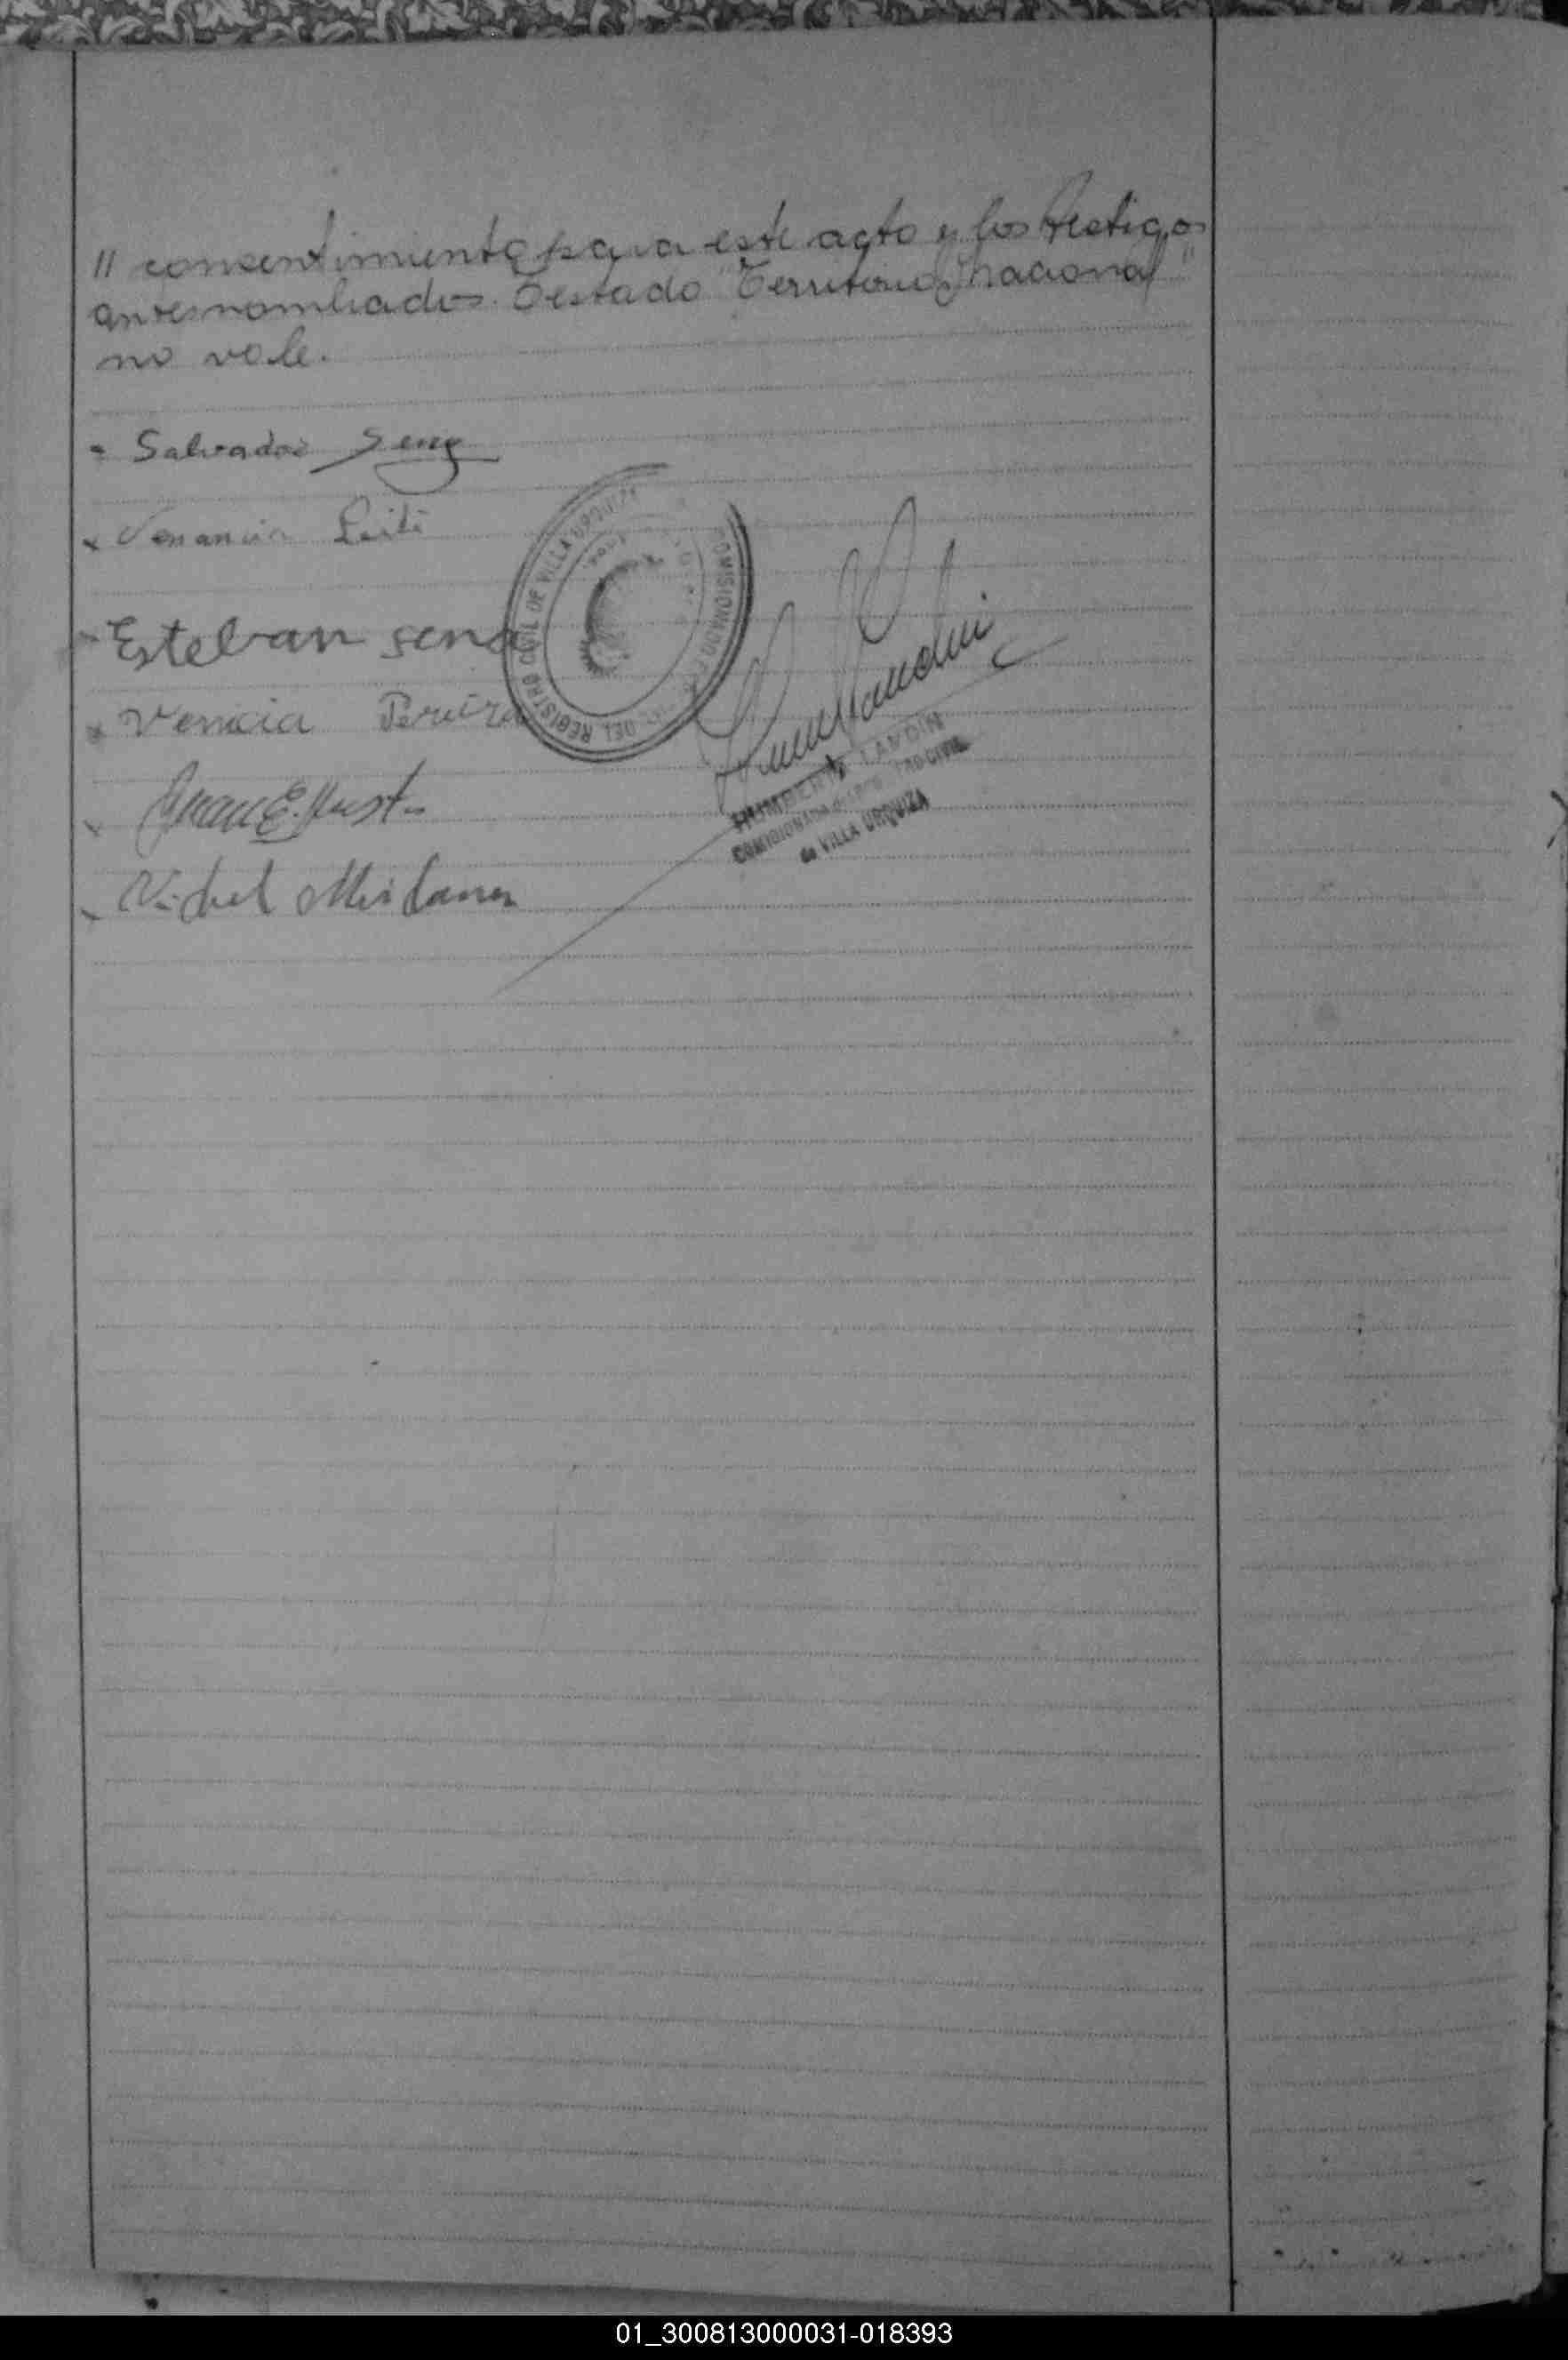 // consentimiento para este acto y los testigos
antesnombrados. Testado "Territorio nacional"
no vale.
Salvador Sena
Venancia Leiti
Esteban sena
Venicia Pereira
Juan E. Just
Michel
DEL REGISTRO CIVIL DE VILLA URQUIZA
COMISIONADO
HUMBERTO LANDINI
COMISIONADO del REGISTRO CIVIL
de VILLA URQUIZA
01_300813000031-018393